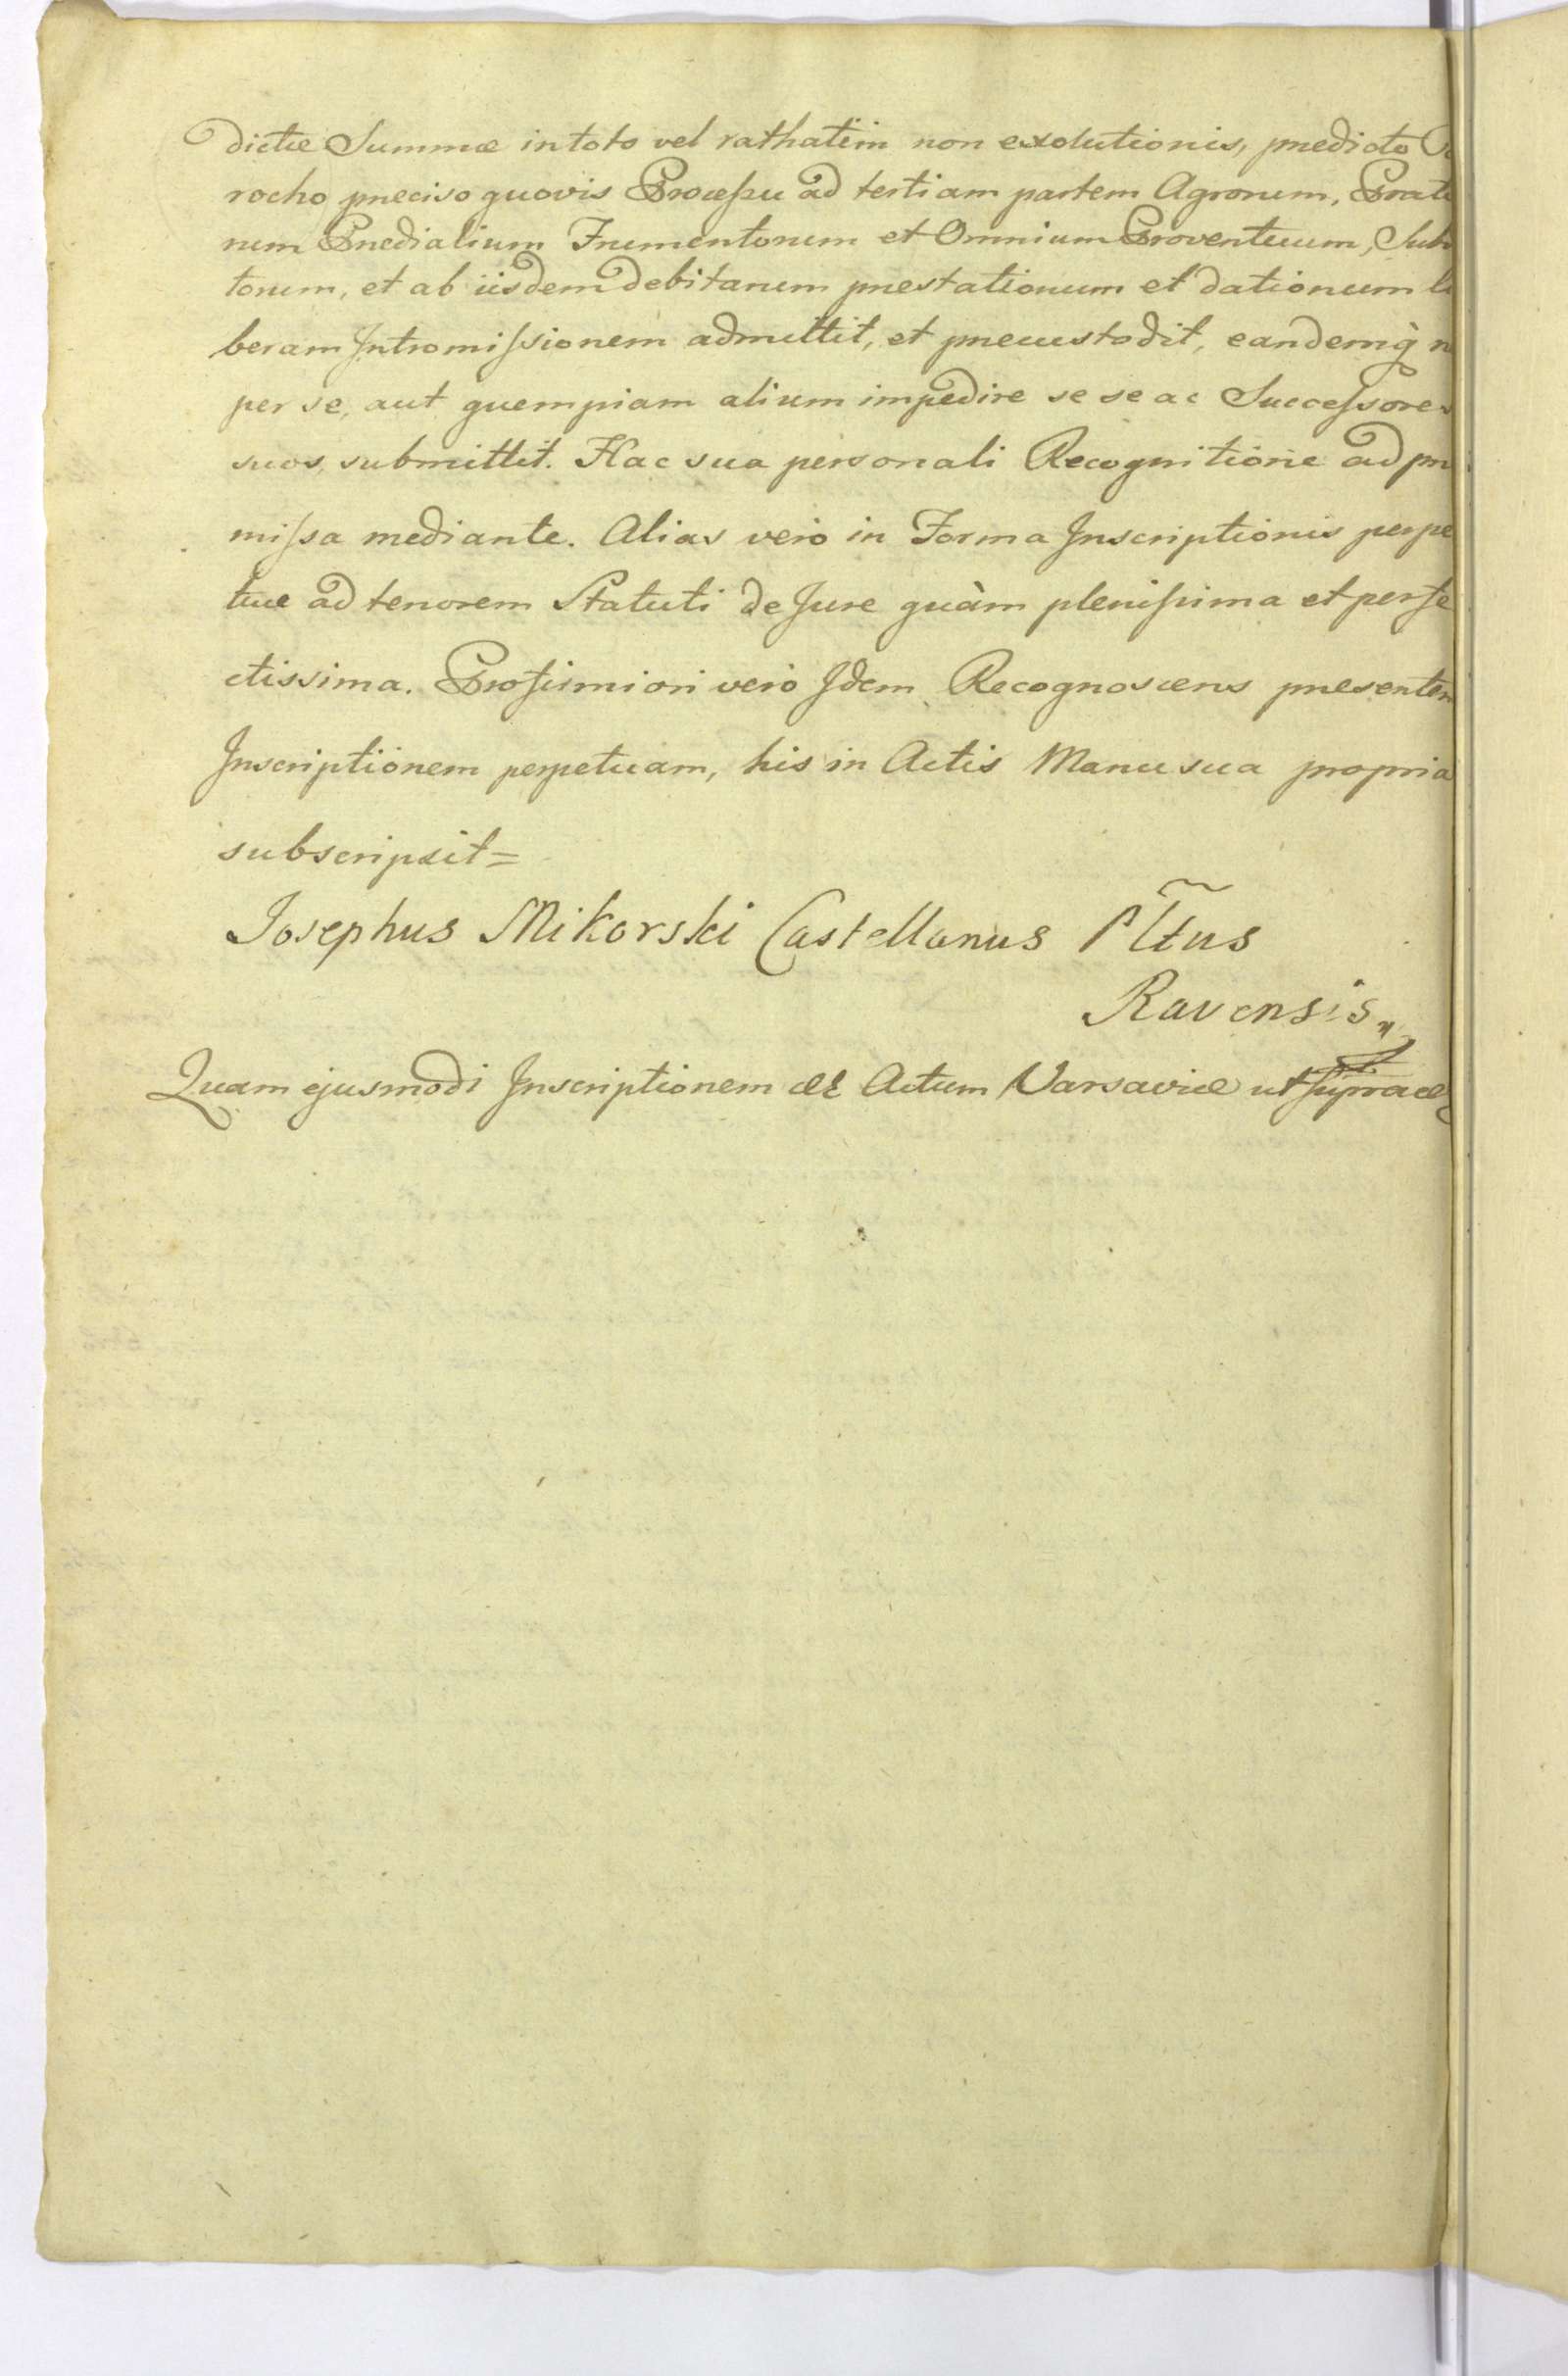 dictæ Summæ in toto vel rathatim non exolutionis, prædicto
rocho præciso quovis Processu ad tertiam partem Agrorum, Prato
rum Prædialium Frumentorum et Omnium Proventuum, Subdi
torum, et ab iisdem debitarum præstationum et dationum li
beram Intromissionem admittit, et præcustodit, eandemq̀ n
per se, aut quempiam alium impedire se se ac Successores
suos, submittit. Hac sua personali Recognitione ad præ
missa mediante. Alias verò in Forma Inscriptionis perpe
tuæ ad tenorem Statuti de Jure quàm plenissima et perfe
ctissima. Pro firmiori verò Idem Recognoscens præsentem
Inscriptionem perpetuam, his in Actis Manu sua propria
subscripsit=
Josephus Mikorski Castellanus
Ravensis
Quam ejusmodi Inscriptionem &c Actum Varsaviæ ut supra &c